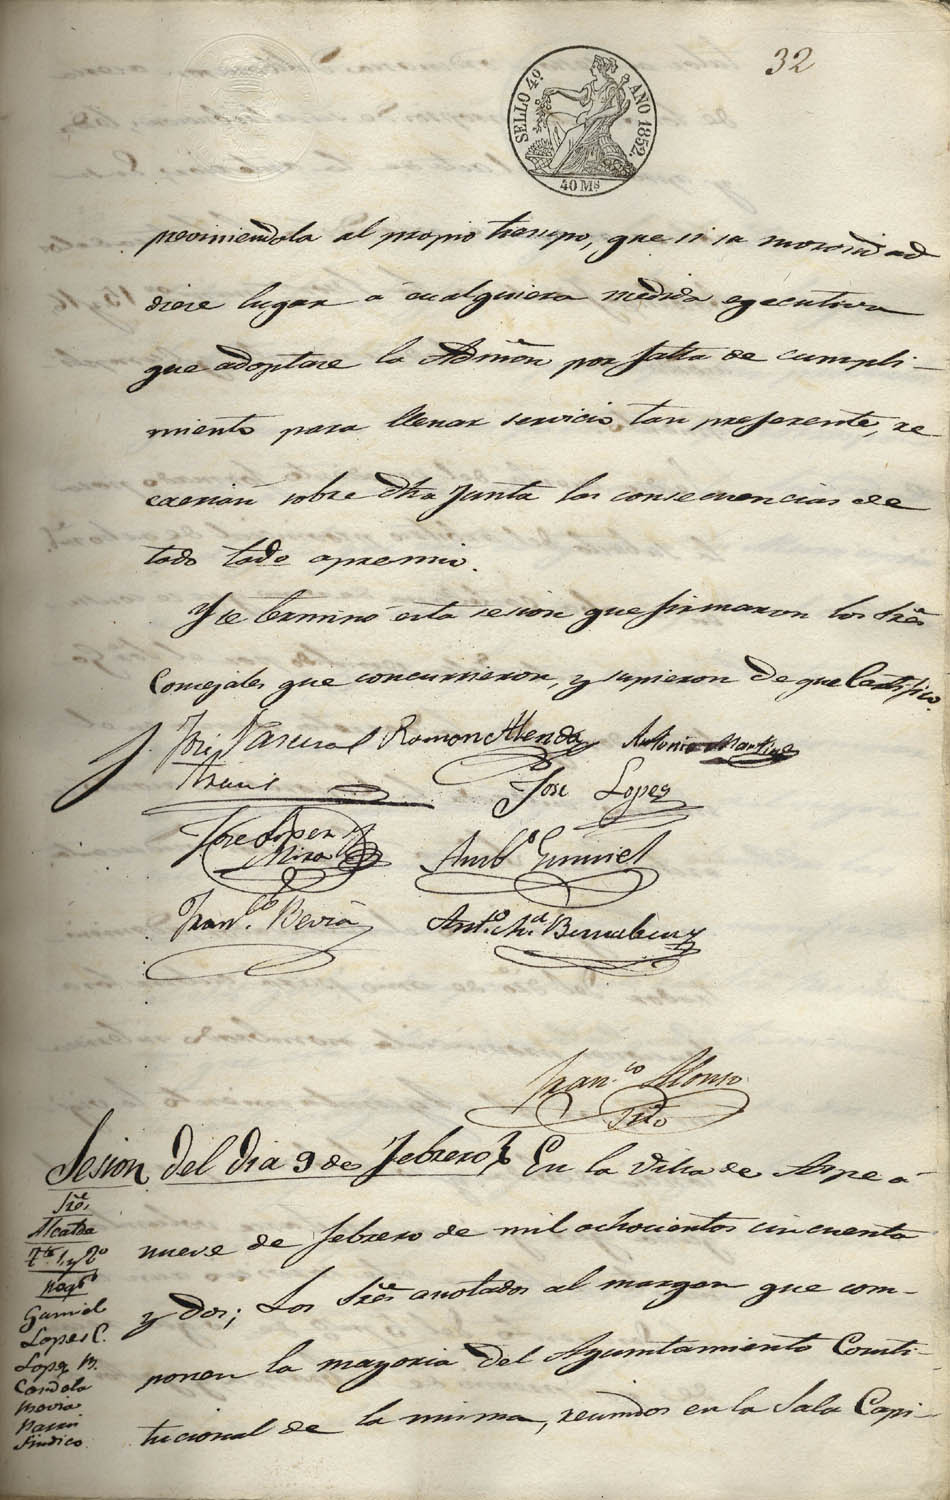 32
SELLO 4º. AÑO 1852.
40 Ms
previniendola al propio tiempo, que si su morosidad
diere lugar á cualquiera medida egecutiva
que adoptare la Admõn por falta de cumpli-
miento para llenar servicio tan preferente, re-
caerian sobre dha Junta las consecuencias de
todo apremio.
Y se terminó esta sesion que firmaron los Sres
Concejales que concurrieron, y supieron de que Certifico.
José Pascual Ramon Alenda Antonio Martinez
José Lopez
Jose Lopez
Mira Amb.º Gumiel
Fran.co Beviá Ant.º M.ª Bernabeu
Fran.co Alonso
Srio
Sesion del dia 9 de Febrero En la Villa de Aspe á
nueve de febrero de mil ochocientos cincuenta
y dos; Los Sres anotados al margen que com-
ponen la mayoria del Ayuntamiento Consti-
tucional de la misma, reunidos en la Sala Capi-
Sres
Alcalde
Ttes 1º y 2º
Gumiel
Lopez C.
Lopez B.
Candela
Sindico